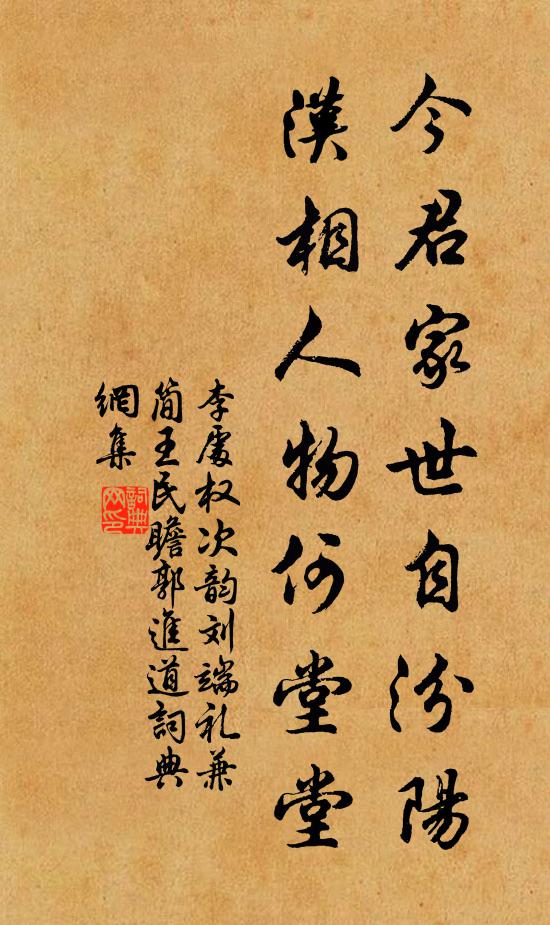 今君家世自汾陽
漢相人物何堂堂
李處权次韵刘端礼兼
简王民瞻郭進道詞典
網集
詞典網印